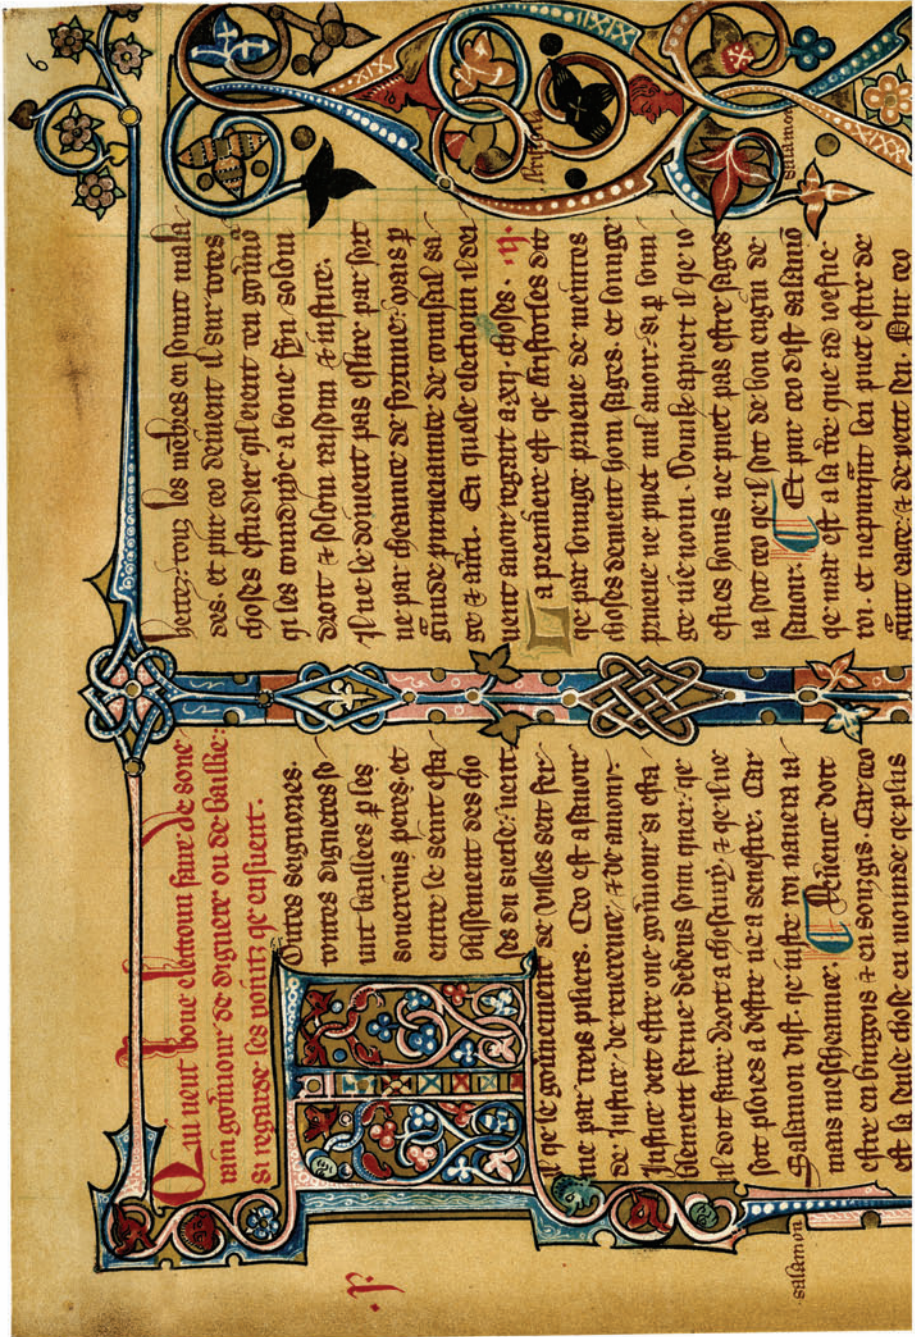 6
Qui veut boue electioun faire de sone
rain gouvnour de dignete ou de baillie:
si regarde les pointz qe ensuent.
.I.
Toutes seignories.
toutes dignetes so
unt baillees p les
sovereins peres. et
entre le seint esta
blissement des cho
ses du siecle: vent
il qe le govnement de villes sert fer
me par treis pilers. Ceo est asavoir
de Justice, de reverence, & de amour.
Justice dett estre one govnour si esta
blement ferme dedens soun quer: qe
il doit faire droit a chescuny. & qe il ne
soit ploies a destre ne a senestre. Car
salamon
Salamon dist. qe juste roi navera ia
mais mescheance. Reverence doit
estre en burgois & en songis. Car ceo
est la seule chose en mounde qe plus
hertez. touz les mebres en sount mala
des. et pur ceo devient il sur totes
choses estudier qil eient teu govno
qi les conduye a bone fyn. solom
droit & solom raisoun & justice.
Il ne le doivent pas eslire par sort
ne par cheance de fortune: mais p
grande purveiance de counsail sa
ge & avisi. En quele election il dei
vent avoir regart a xij. choses. .ij.
La premiere est qe Aristotles dit
qe par longe prueve de meintes
choses devient hom sages. et longe
prueve ne puet nul avoir: si p loun
ge vie noun. Dounke apiert il qe jo
efnes homs ne puet pas estre sages
ia soit ceo qe il soit de bon engin de
savoir. Et pur ceo dist salamo
salamon
qe mar est a la tre que ad joefne
roi. et nepurqut len puet estre de
grant eage: & de petit sen. Pur ceo